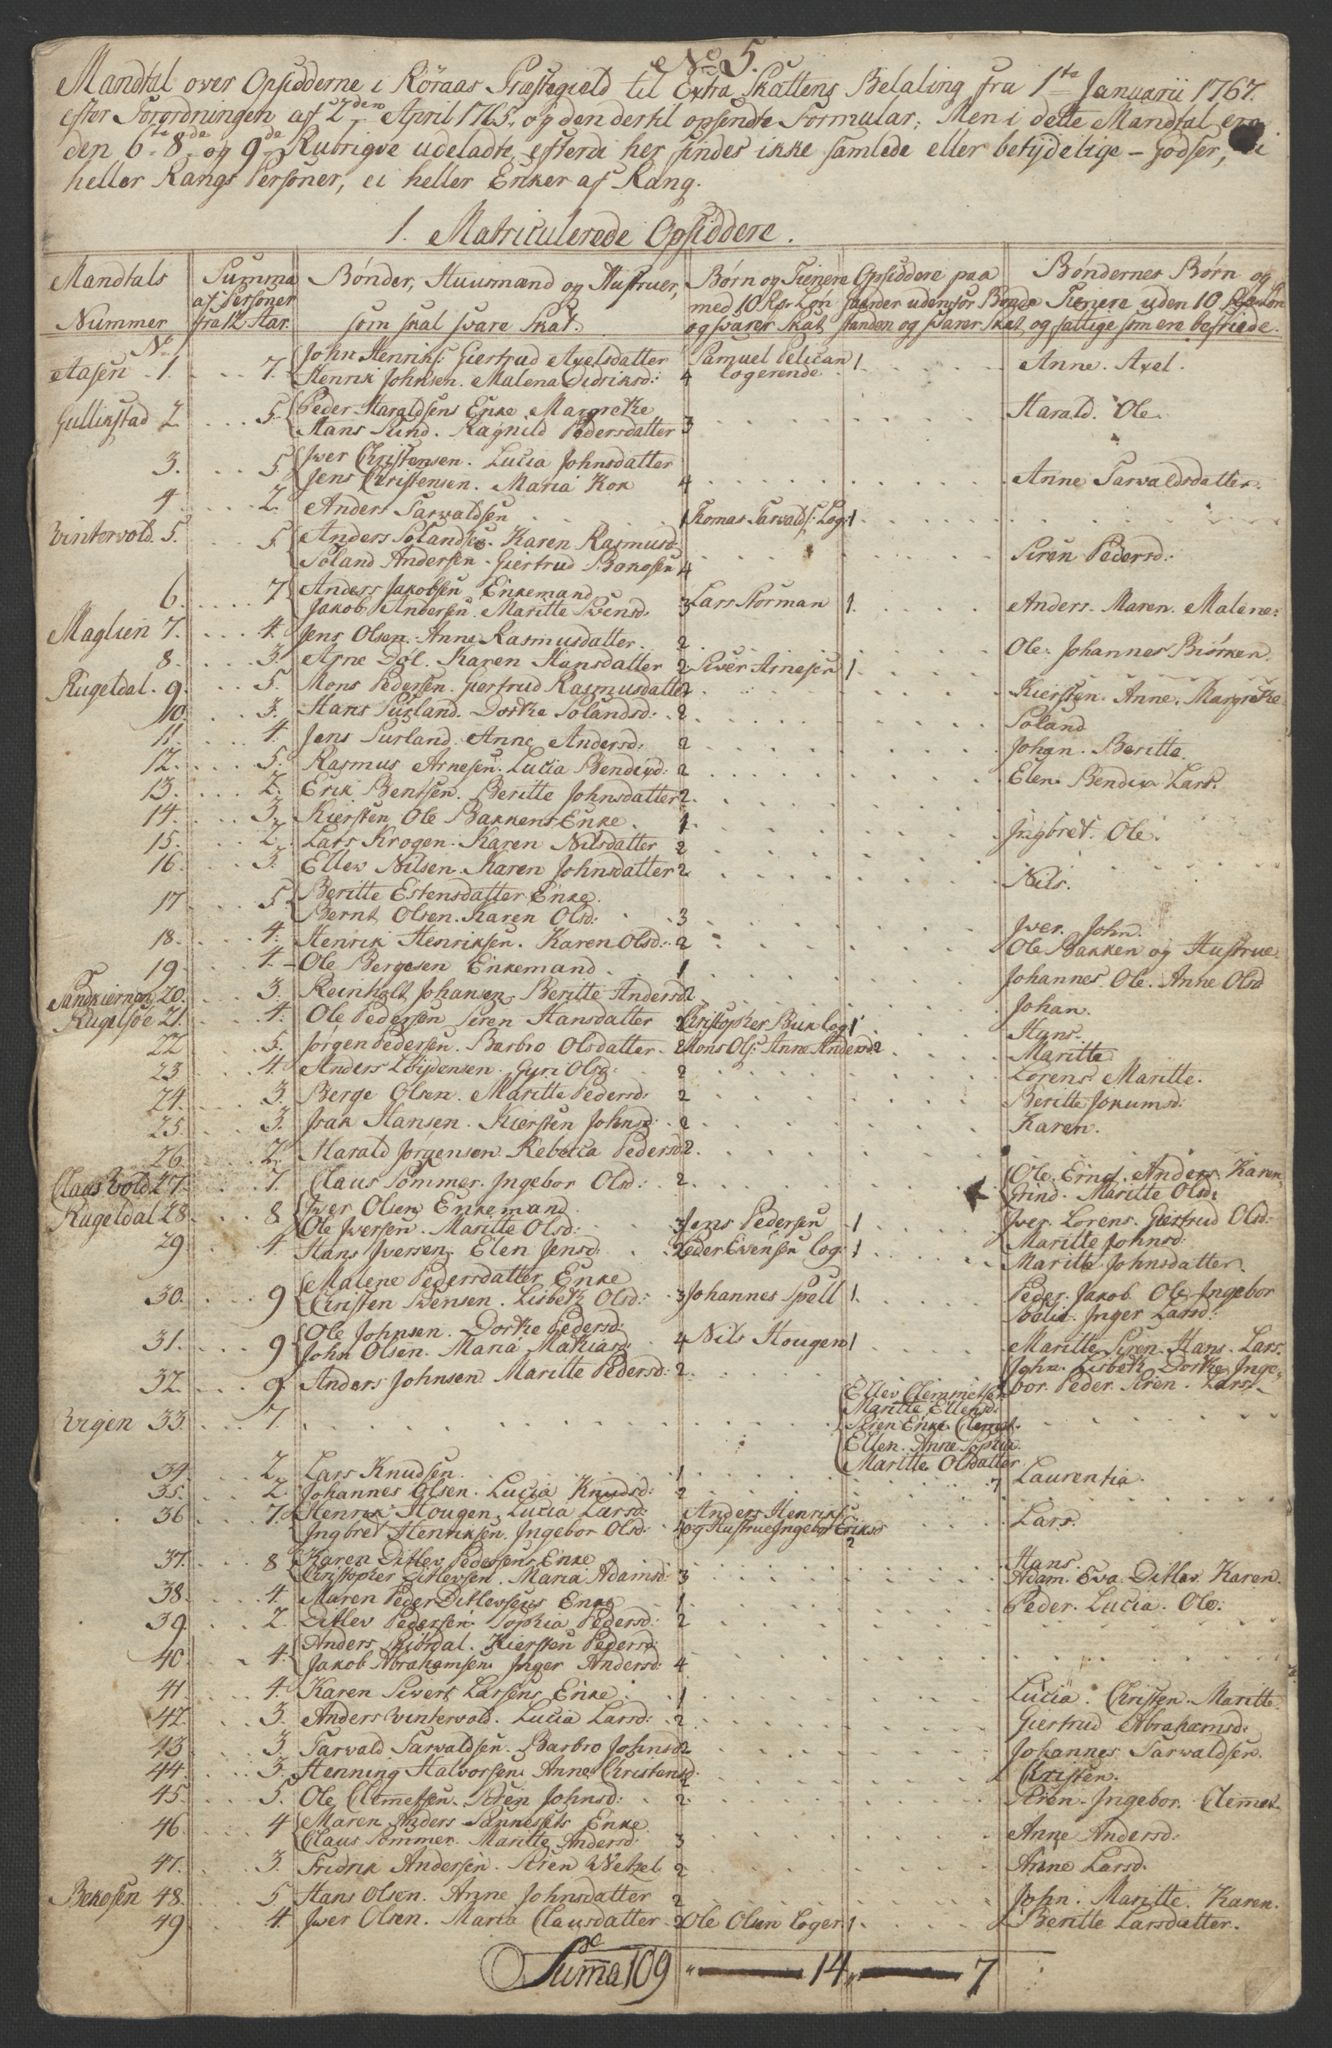 No 5.
Mandtal over Opsidderne i Röraas Præstegield til Extra Skattens Betaling fra 1te Januarii 1767.
efter Forordningen af 2den April 1765, og den dertil opsendte Formular; Men i dette Mandtal ere
den 6te 8de og 9de Rubriqve udeladte, efterdi her findes ikke samlede eller betydelige Godser, ei
heller Rangs Personer, ei heller Enker af Rang.
1. Matriculerede Opsiddere.
Mandtals Nummer | Summa af Personer fra 12 Aar. | Bönder, Huusmænd og Hustruer, som skal svare Skat. | Börn og Tienere med 10 Rdr Lön og svarer Skat | Opsiddere paa Gaarder udenfor Bonde Standen og svarer Skat | Böndernes Börn og Tienere uden 10 Rdr Lön og fattige som ere befriede.
No
Aasen 1. 7. John Henriks: Giertrud Axelsdatter Samuel Pelican 1 Anne. Axel.
Henrik Johnsen. Malena Didriksd: 4 logerende
Gullikstad 2. 5. Peder Haraldsens Enke Margrethe Harald. Ole
Hans Sund. Ragnild Pedersdatter 3
3. 5. Iver Christensen. Lucia Johnsdatter
Jens Christensen. Maria Kok 4 Anne Tarvaldsdatter.
4 2. Anders Tarvaldsen 1 Thomas Tarvalds: Log: 1
Vintervold 5. 5. Anders Solands: Karen Rasmusd:
Soland Andersen. Giertrud Bonosen 4 Siren Pedersd:
6. 7. Anders Jakobsen Enkemand
Jakob Andersen. Maritte Svensd: 3 Lars Norman 1. Anders. Maren. Malene:
Maglien 7. 4. Jens Olsen. Anne Rasmusdatter. 2. Ole. Johannes Biörken.
8. 3. Arne Döl. Karen Hansdatter 2. Siver Arnesen 1
Kugeldal. 9. 5. Mons Pedersen. Giertrud Rasmusdatter 2 Kiersten. Anne. Margrethe
10. 3. Hans Surland. Dorthe Solandsd: 2 Soland
11. 4. Jens Surland. Anne Andersd: 2 John. Beritte.
12. 5. Rasmus Arnesen. Lucia Bendixd: 2 Elen. Bendix Lars.
13. 2. Erik Bentsen. Beritte Johnsdatter 2.
14. 3. Kiersten Ole Bakkens Enke. 1. Ingbret. Ole.
15. 2. Lars Krogen. Karen Nilsdatter 2
16. 3. Ellev Nilsen. Karen Johnsdatter 2 Nils.
17. 5. Beritte Estensdatter Enke.
Bernt Olsen. Karen Olsd: 3 Iver. John.
18. 4. Henrik Henriksen. Karen Olsd: 2 Ole Bakken og Hustrue
19. 4. Ole Bergesen Enkemand. 1 Johannes Ole. Anne Olsd
20. 3. Reinholt Johansen. Beritte Andersd 2 Johan.
Kugelsöe 21. 4. Ole Pedersen Siren Hansdatter 2 Christopher Buk log 1 Hans.
22 5. Jörgen Pedersen. Barbro Olsdatter. 2 Mons Ols: Anne Andersd 2 Maritte
23 4 Anders Löypensen. Gyri Olsd: 2 Lorens. Maritte.
24. 3. Berge Olsen. Maritte Pedersd: 2 Beritte Jokumsd:
25. 3. Isak Hansen. Kiersten Johnsd: 2 Karen.
26. 2. Harald Jörgensen. Rebecca Pedersd 2.
Claus Vold 27. 7. Claus Sommer. Ingebor Olsd: 2. Ole. Ernst. Anders. Karen.
Maritte Olsd:
Kugeldal 28. 8 Iver Olsen Enkemand
Ole Iversen. Maritte Olsd: 3 Jens Pedersen 1 Iver. Lorens. Giertrud Olsd: Maritte Johnsd:
29 4 Hans Iversen. Elen Jensd: 2 Peder Evensen log: 1 Maritte Johnsdatter.
30. 9 Malene Pedersdatter Enke
Christen Svensen. Lisbeth Olsd: 3 Johannes Spell 1. Peder. Jakob Ole. Ingebor Inger Larsd:
31. 9 Ole Johnsen. Dorthe Pedersd:
John Olsen. Maria Mathiasd: 4 Nils Hougen 1 Maritte Siren. Hans. Lars.
John. Lisbeth Dorthe Inge-
32. 9. Anders Johnsen Maritte Pedersd: 2. bor. Peder. Siren. Lars.
Vigen 33. 7. Ellev Clemmetsen
Maritte Ellevsd:
Siren Enke Clemet.
Ellen. Anne Sophia
Maritte Olsdatter 7
34. 2. Lars Knudsen. 1 Laurentia.
35. 2. Johannes Olsen. Lucia Knudsd: 2
36 7. Henrik Hougen. Lucia Larsd: Anders Henriks:
Ingbret Henriksen. Ingebor Olsd: 4 og Hustrue Ingebor Eriksd 2 Lars.
37. 8 Karen Ditlev Pedersens Enke Hans
Christopher Ditlevsen. Maria Adamsd: 3 Adam. Eva. Ditlev. Karen.
38. 4. Maren Peder Ditlevsens Enke 1 Peder. Lucia. Ole.
39 2. Ditlev Pedersen. Sophia Pedersd: 2
40. 4. Anders Kiörsdal. Kiersten Pedersd:
Jakob Abrahamsen. Inger Andersd: 4
41. 4. Karen Sivert Larsens Enke. 1 Lucia. Christen. Maritte
42. 3. Anders Vintervold. Lucia Larsd: 2 Giertrud Abrahamsd:
43 3 Tarvald Tarvaldsen. Barbro Johnsd 2 Johannes Tarvaldsen.
44. 3. Henning Halvorsen. Anne Christensd. 2 Christen.
45. 5. Ole Clemetsen. Siren Johnsd: 2. Siren. Ingebor. Clemet.
46. 4 Maren Anders Sannesets Enke
Claus Sommer. Maritte Andersd: 3 Anne Andersd:
47. 3. Fridrik Andersen. Siren Wetzel 2 Anne Larsd.
Bekosen 48. 5 Hans Olsen. Anne Johnsdatter 2 John. Maritte. Karen.
49 4. Iver Olsen. Maria Clausdatter 2 Ole Olsen loger 1 Beritte Larsdatter.
Summa 109 14 7